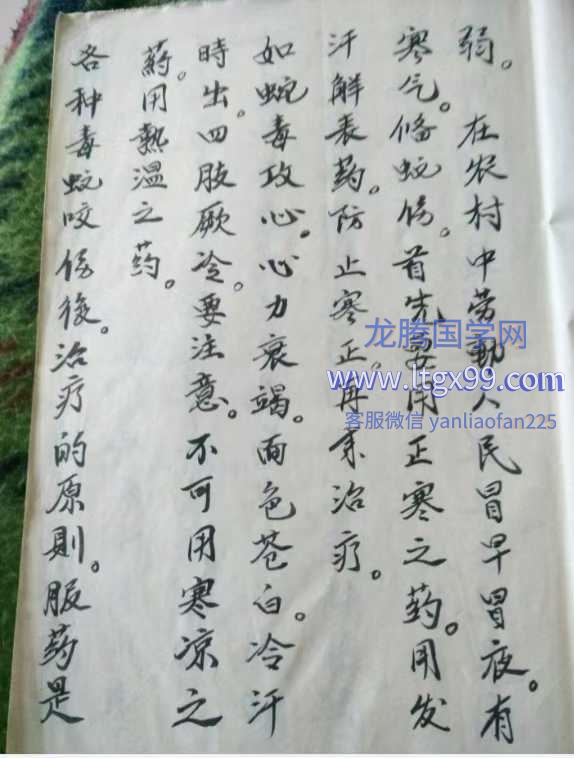 弱。在农村中劳動人民冒早冒夜。有
寒气。俻蚊伤。首先要用正寒之药。用发
汗解表药。防止寒正。再来治疗。
如蛇毒攻心。心力衰竭。面色苍白。冷汗
時出。四肢厥冷。要注意。不可用寒凉之
药。用熱温之药。
各种毒蚊咬伤後。治疗的原則。服药是
龙腾国学网
www.ltgx99.com
客服微信 yanliaofan225